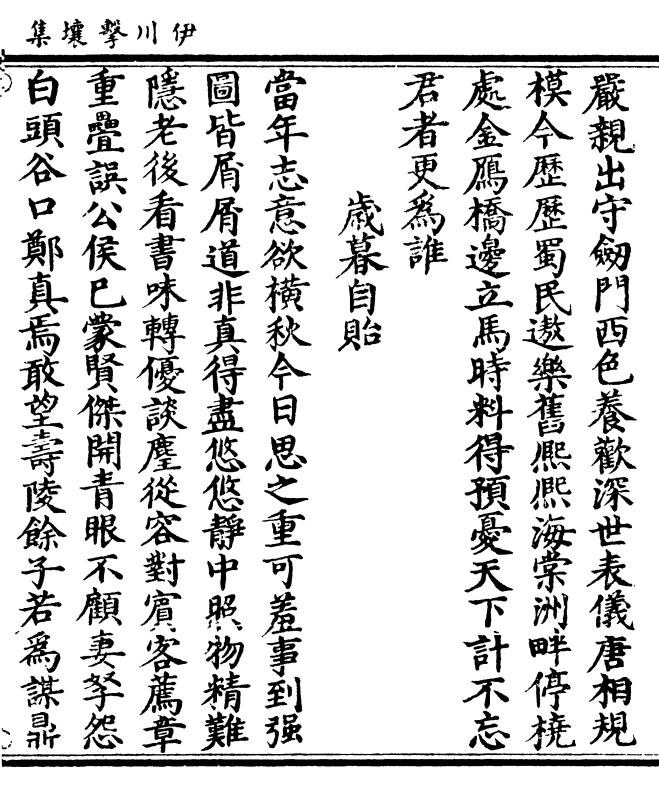 伊川擊壤集
嚴親出守劒門西色養歡深世表儀唐相規
模今歷歷蜀民遨樂舊熈熈海棠洲畔停橈
處金鴈橋邊立馬時料得預憂天下計不忘
君者更爲誰
歲暮自貽
當年志意欲橫秋今日思之重可羞事到强
圖皆屑屑道非真得盡悠悠靜中照物精難
隱老後看書味轉優談麈從容對賓客薦章
重疊誤公侯已蒙賢傑開青眼不顧妻孥怨
白頭谷口鄭真焉敢望壽陵餘子若爲謀鼎